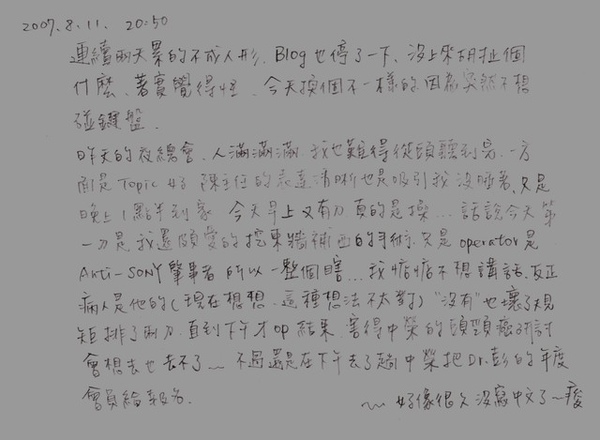 2007.8.11. 20:50
連續兩天累的不成人形, Blog也停了一下、沒上來胡扯個
什麼、著實覺得怪. 今天換個不一樣的因為突然不想
碰鍵盤.
昨天的夜總會. 人滿滿滿. 我也難得從頭聽到尾. 一方
面是Topic好 陳主任的表達清晰也是吸引我沒睡著、又是
晚上1點半到家 今天早上又有刀 真的是操... 話說今天第
一刀是我還頗愛的挖東牆補西的手術. 只是operator是
Anti-SONY肇事者 所以一整個瞎... 我惦惦不想講話、反正
病人是他的(現在想想、這種想法不太對) "沒有"也壞了規
矩排了兩刀 直到下午才op結束、害得中榮的頭頸癌研討
會想去也去不了~~ 不過還是在下午去了趟中榮把Dr.彭的年度
會員給報名.
~~ 好像很久沒寫中文了~痠